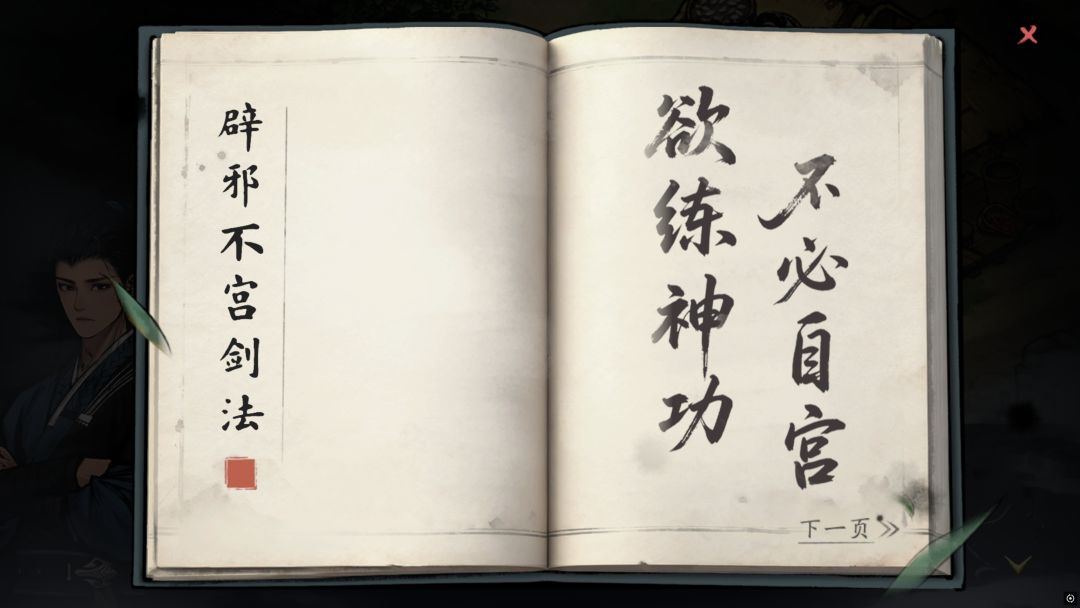 辟邪不宫剑法
欲练神功
不必自宫
下一页